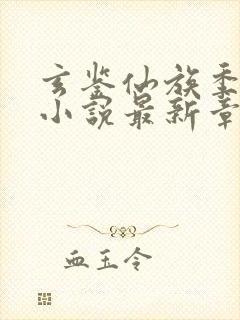 玄鉴仙族季
小说最新章
血玉令